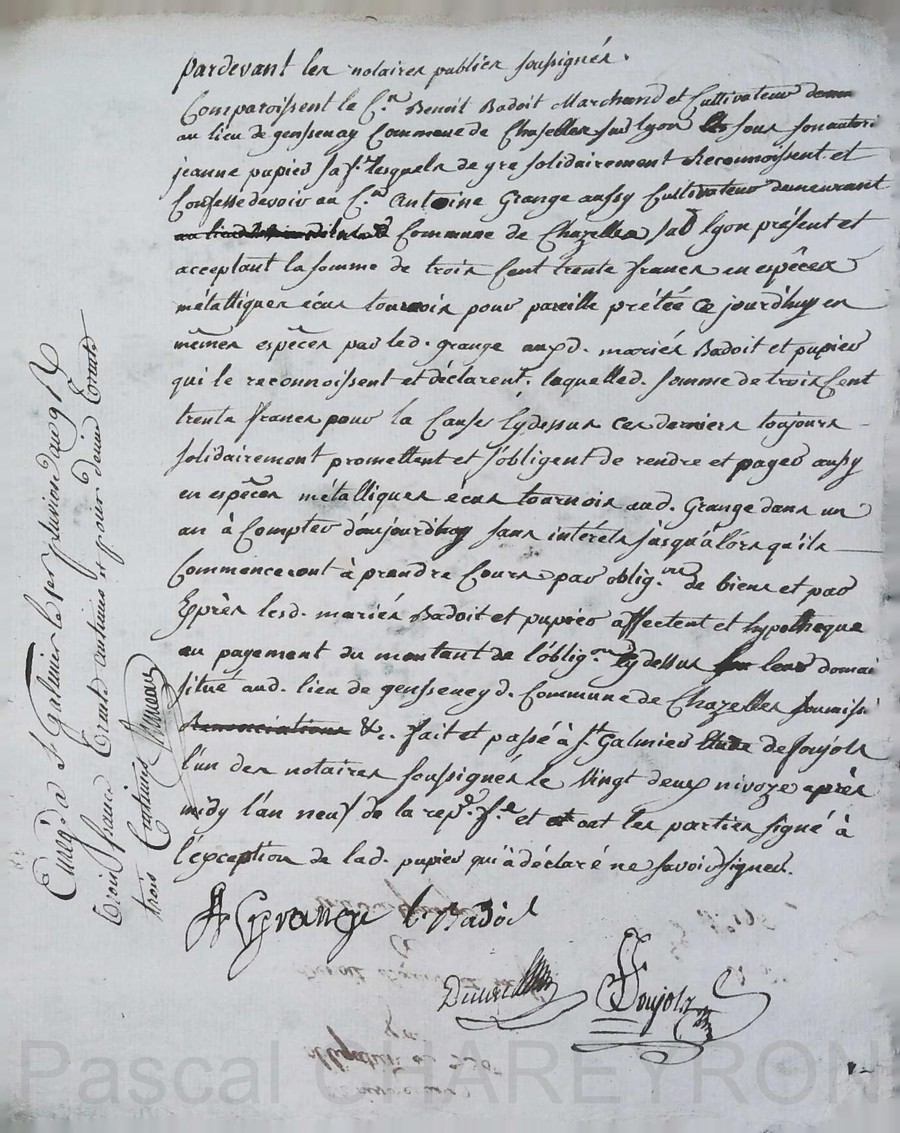 pardevant les notaires publics soussignés.
Comparoissent le C.en Benoit Badoit Marchand et Cultivateur dem
au lieu de gensenay Commune de Chazelles sur lyon sous son autori
jeanne pupier sa f.e lesquels de gre solidairement Reconnoissent et
Confesse devoir au C.en Antoine Grange aussy Cultivateur demeurant
Commune de Chazelles sur lyon présent et
acceptant la somme de trois Cent trente francs en espêces
métalliques écus tournois pour pareille prêtée ce jourd'huy en
mêmes espêces par led. grange auxd. mariés Badoit et pupier
qui le reconnoissent et déclarent, laquelled. somme de trois Cent
trente francs pour la Cause Cydessus ces derniers toujours
solidairement promettent et s'obligent de rendre et payer aussy
en espêces métalliques écus tournois aud. Grange dans un
an à Compter d'aujourd'huy sans intérets jusqu'alors qu'ils
Commenceront à prendre Cours par oblig.on de biens et par
Exprès lesd. mariés Badoit et pupier affectent et hypotheque
au payement du montant de l'oblig.on Cydessus leur domai
situé aud. lieu de genseney d. Commune de Chazelles soumissi
Renonciations &c. fait et passé à St Galmier Etude de soujols
l'un des notaires soussignés le vingt deux nivoze après
midy l'an neuf de la rep.e f.e et ont les parties signé à
l'exception de lad. pupier qui a déclaré ne savoir signer.
A Grange b. Badoit
Soujols
Enreg.é à St Galmier le 1er pluviose an 9 R
trois francs trente Centimes et pour dixième trente
trois Centimes
Pascal CHAREYRON